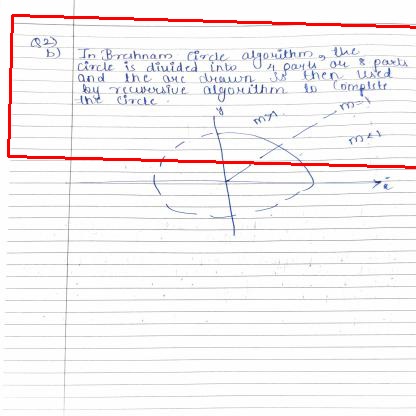 Q2)
b) In Breshnam Circle algorithm, the
circle is divided into 4 parts or 8 parts
and the arc drawn is then used
by recursive algorithm to complete
the circle.
y
m>1
m=1
m<1
x